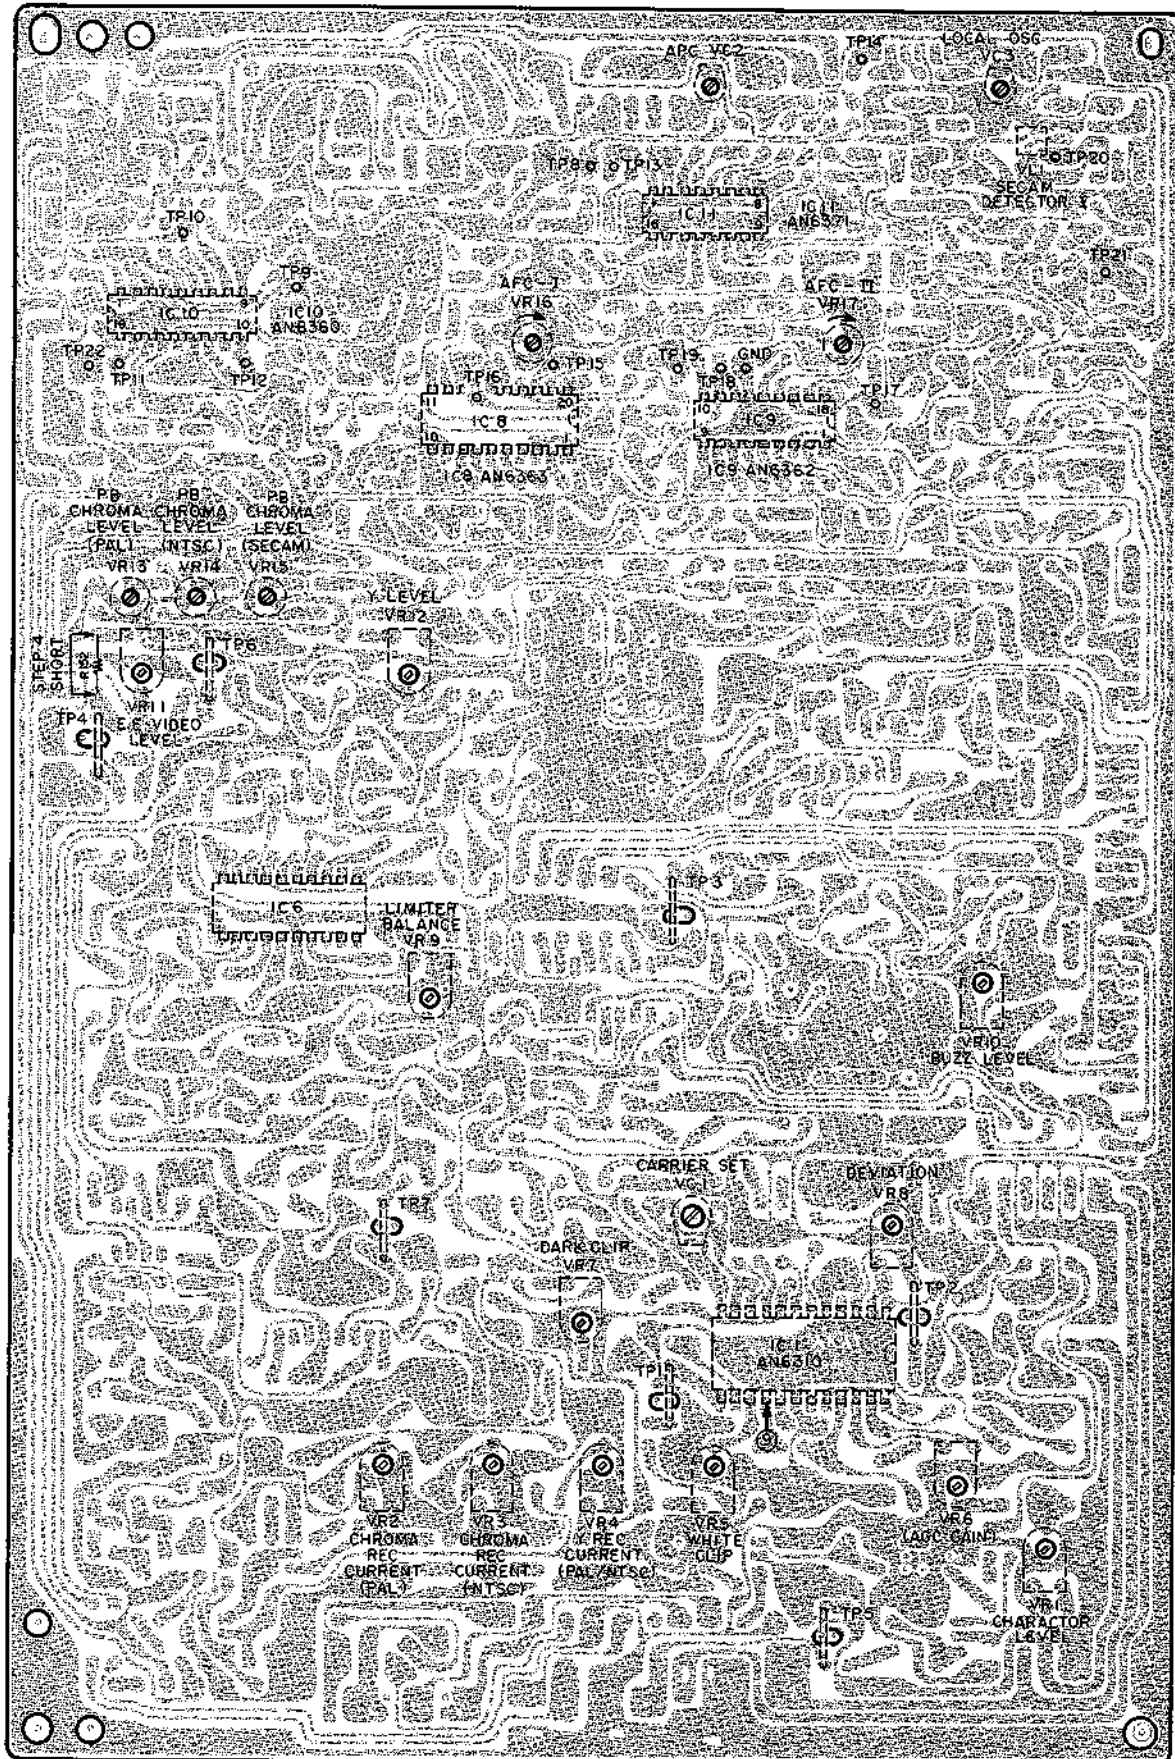 APC VC2
TP14
LOCAL OSC
VC3
TP8
TP13
TP20
VL1
SECAM
DETECTOR
8
IC11
16
9
IC11
AN6371
TP10
TP21
TP9
AFC-I
VR16
AFC-II
VR17
9
IC10
18
10
IC10
AN6360
TP22
TP11
TP12
TP15
TP16
TP19
TP18
GND
TP17
11
20
IC8
10
IC8 AN6363
10
18
IC9
9
IC9 AN6362
PB
CHROMA
LEVEL
(PAL)
VR13
PB
CHROMA
LEVEL
(NTSC)
VR14
PB
CHROMA
LEVEL
(SECAM)
VR15
Y LEVEL
VR12
STEP-4
SHORT
TP6
VR11
E.E VIDEO
LEVEL
TP4
IC6
LIMITER
BALANCE
VR9
TP3
VR10
BUZZ LEVEL
CARRIER SET
VC1
DEVIATION
VR8
TP7
DARK CLIP
VR7
TP2
IC1
AN6310
TP1
VR2
CHROMA
REC
CURRENT
(PAL)
VR3
CHROMA
REC
CURRENT
(NTSC)
VR4
Y REC
CURRENT
(PAL/NTSC)
VR5
WHITE
CLIP
VR6
(AGC GAIN)
VR1
CHARACTOR
LEVEL
TP5